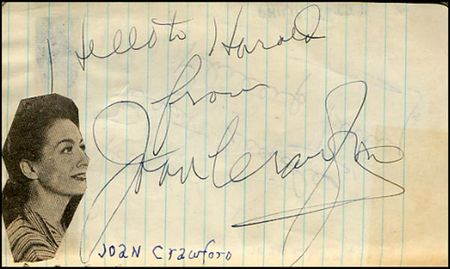 Hello to Harold
from
Joan Crawford
JOAN Crawford